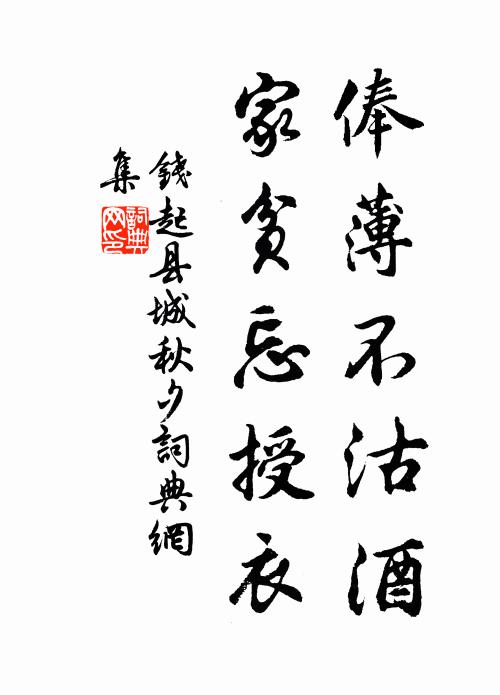 俸薄不沽酒
家贫忘授衣
錢起县城秋夕詞典網
集
詞典
网印